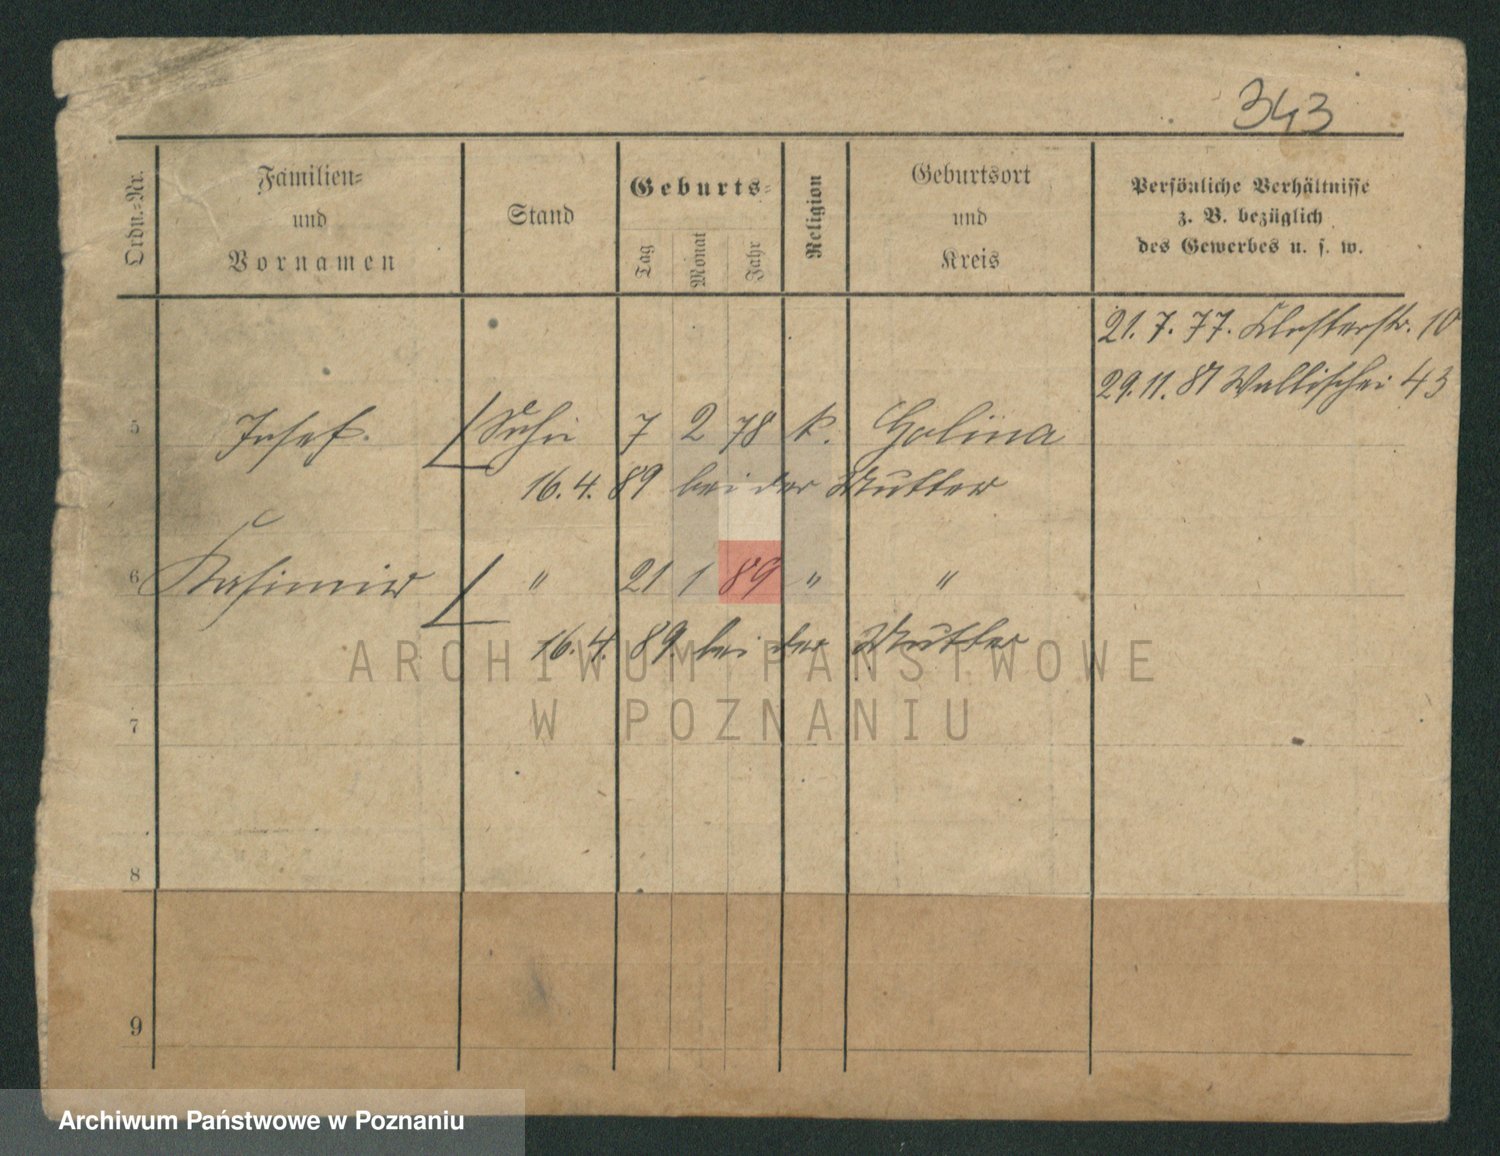 343
Ordn.-Nr.
Familien-
und
Vornamen
Stand
Geburts-
Tag
Monat
Jahr
Religion
Geburtsort
und
Kreis
Persönliche Verhältnisse
z. B. bezüglich
des Gewerbes u. s. w.
21. 7. 77. Klosterstr. 10
29. 11. 81 Wallischei 43
5 Josef. Sohn 7 2 78 k. Golina
16. 4. 89 bei der Mutter
6 Kasimir " 21 1 89 " "
16. 4. 89. bei der Mutter
ARCHIWUM PAŃSTWOWE
W POZNANIU
7
8
9
Archiwum Państwowe w Poznaniu